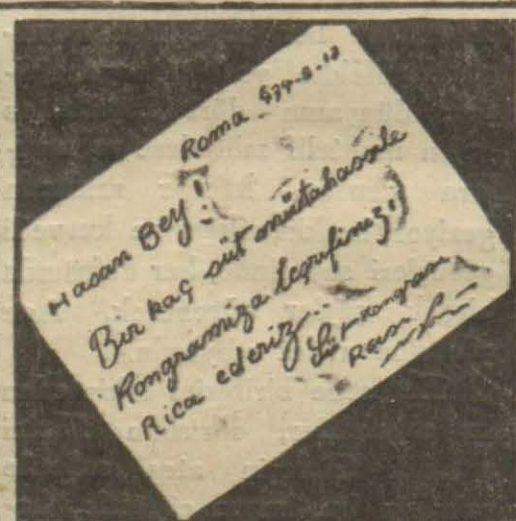 Roma 934-8-18
Hasan Bey!
Bir kaç süt mütahassısile
Kongramıza teşrifinizi
Rica ederiz..
Süt Kongrası
Reisi